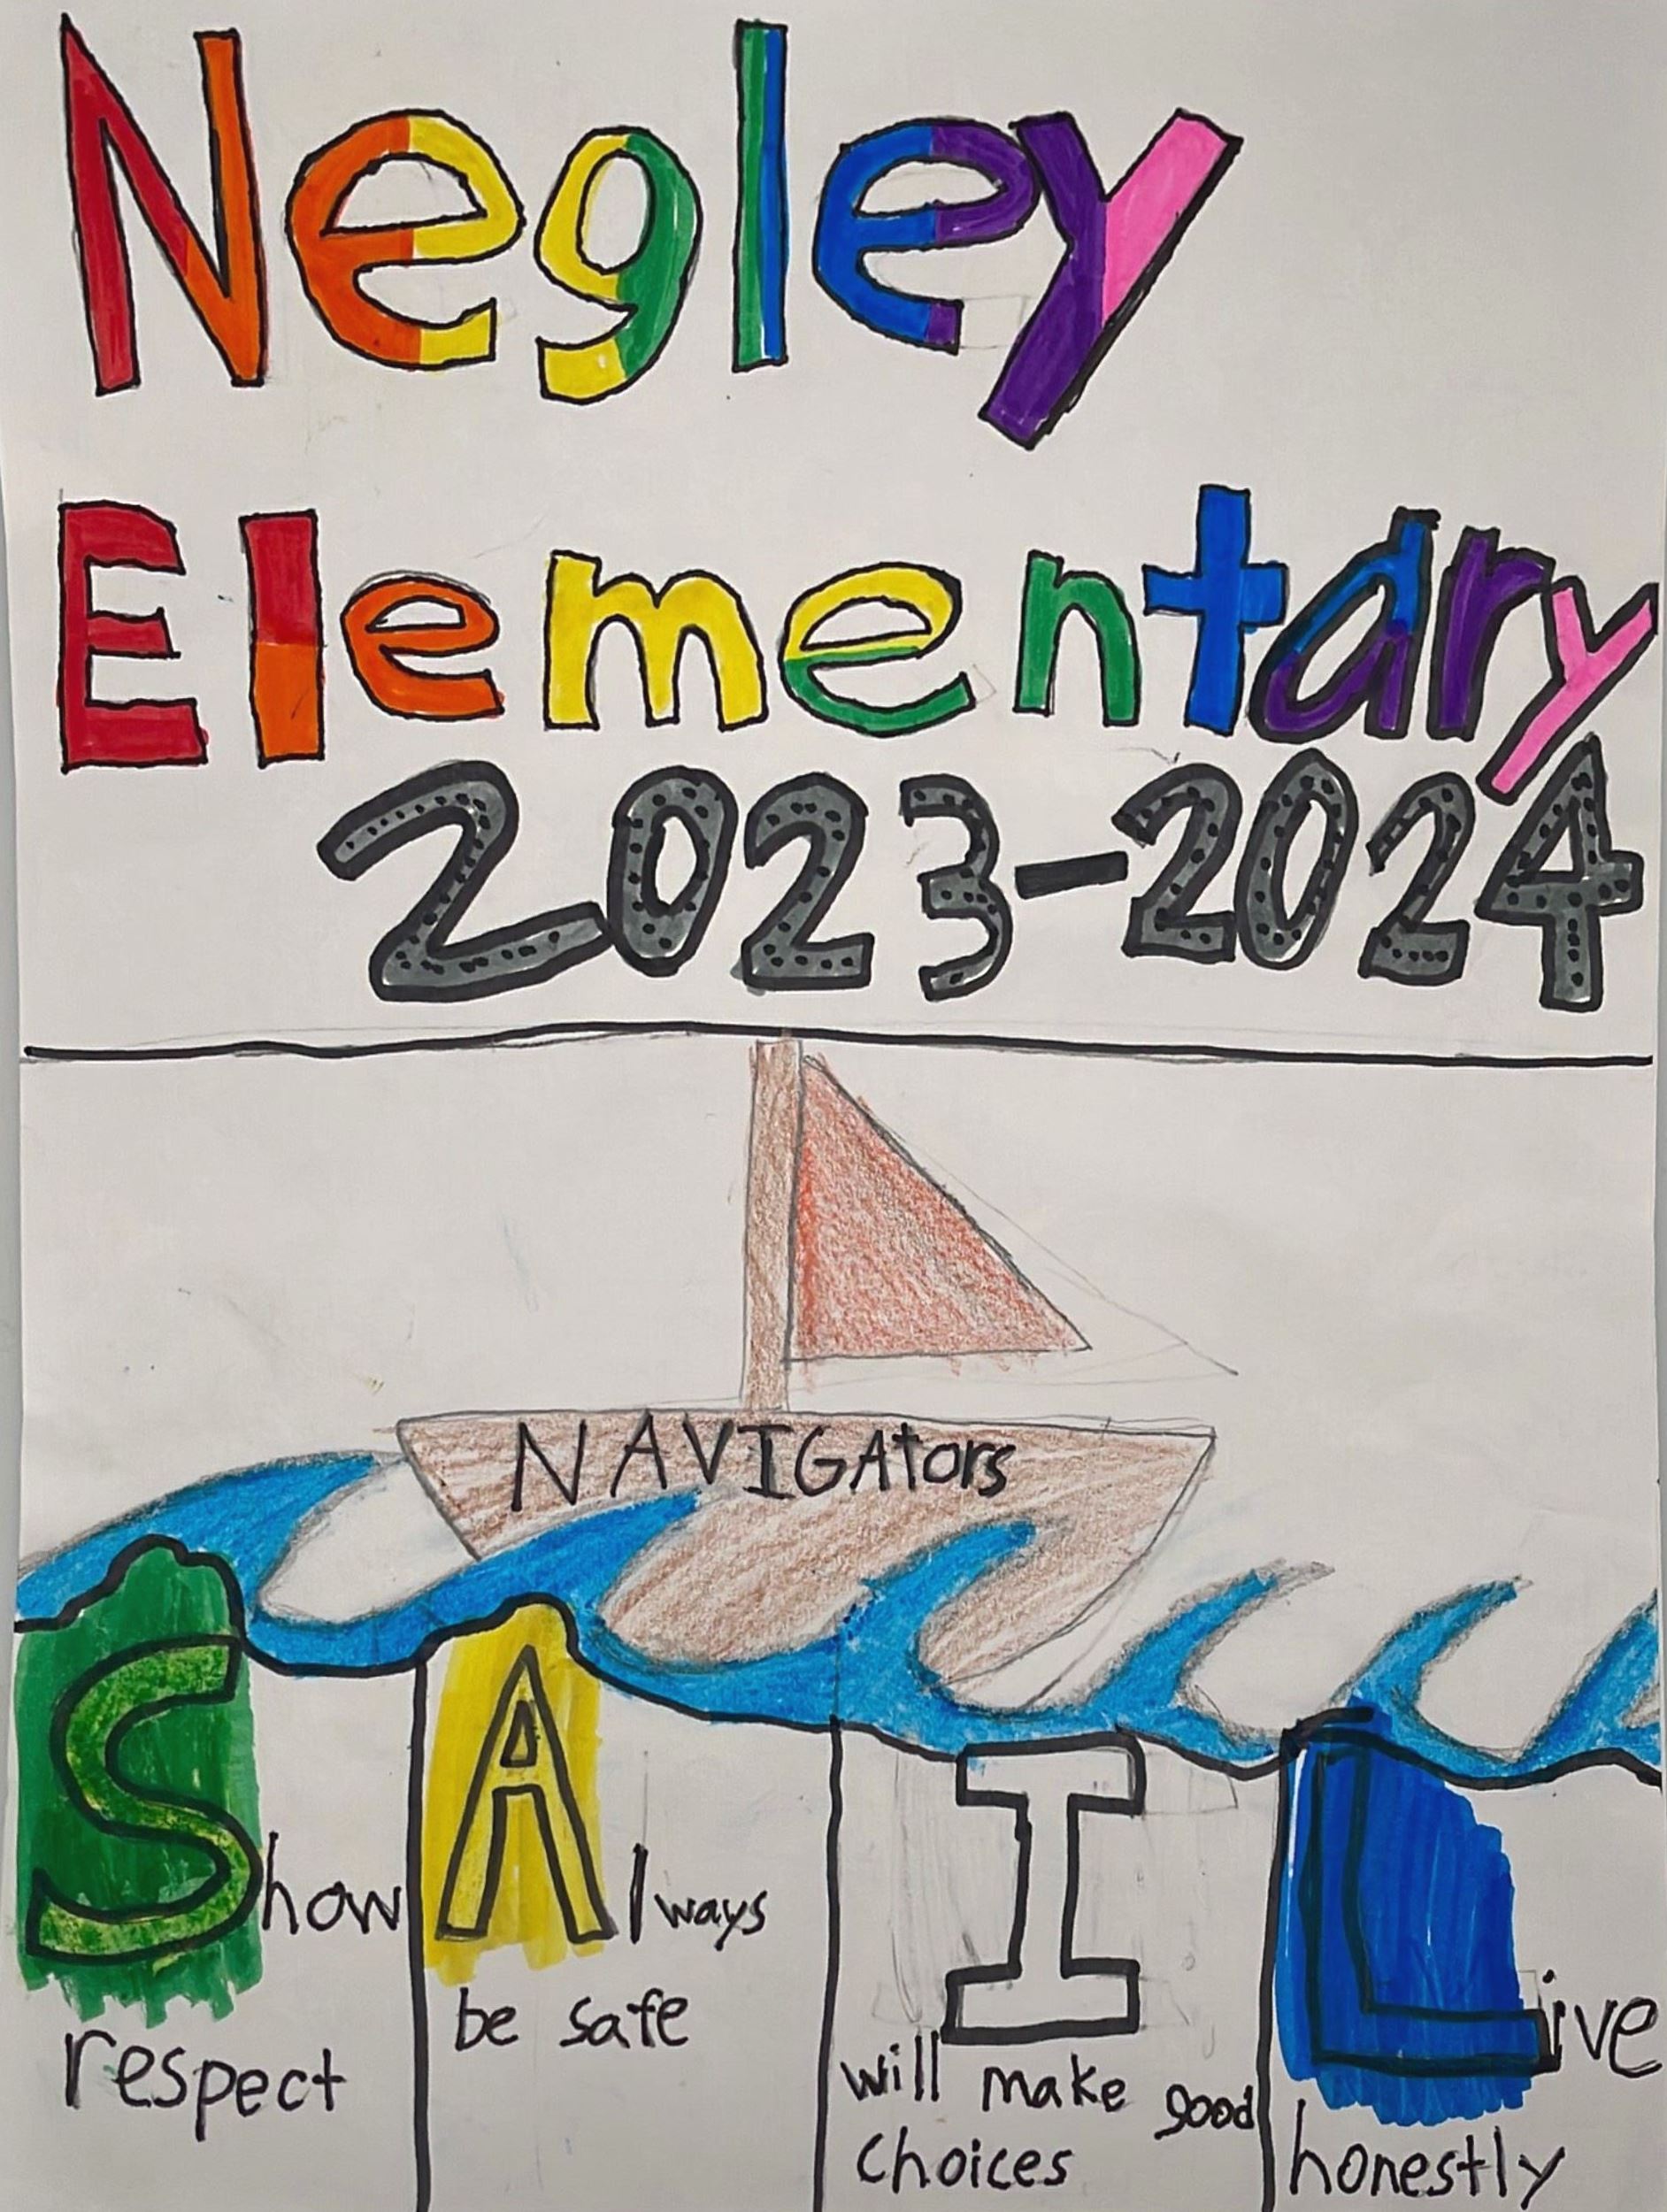 Negley
Elementary
2023-2024
NAVIGAtors
Show
respect
Always
be safe
I
will make good
choices
Live
honestly